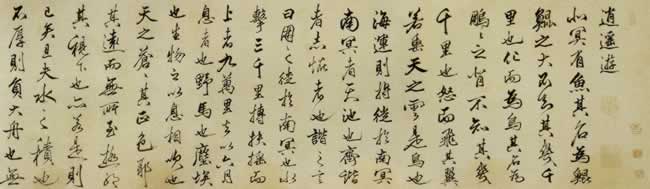 逍遙遊
北冥有魚其名為鯤
鯤之大不知其幾千
里也化而為鳥其名為
鵬〻之背不知其幾
千里也怒而飛其翼
若垂天之雲是鳥也
海運則將徙於南冥
南冥者天池也齊諧
者志怪者也諧之言
曰鵬之徙於南冥也水
擊三千里摶扶搖而
上者九萬里去以六月
息者也野馬也塵埃
也生物之以息相吹也
天之蒼〻其正色耶
其遠而無所至極耶
其視下也亦若是則
已矣且夫水之積也
不厚則負大舟也無